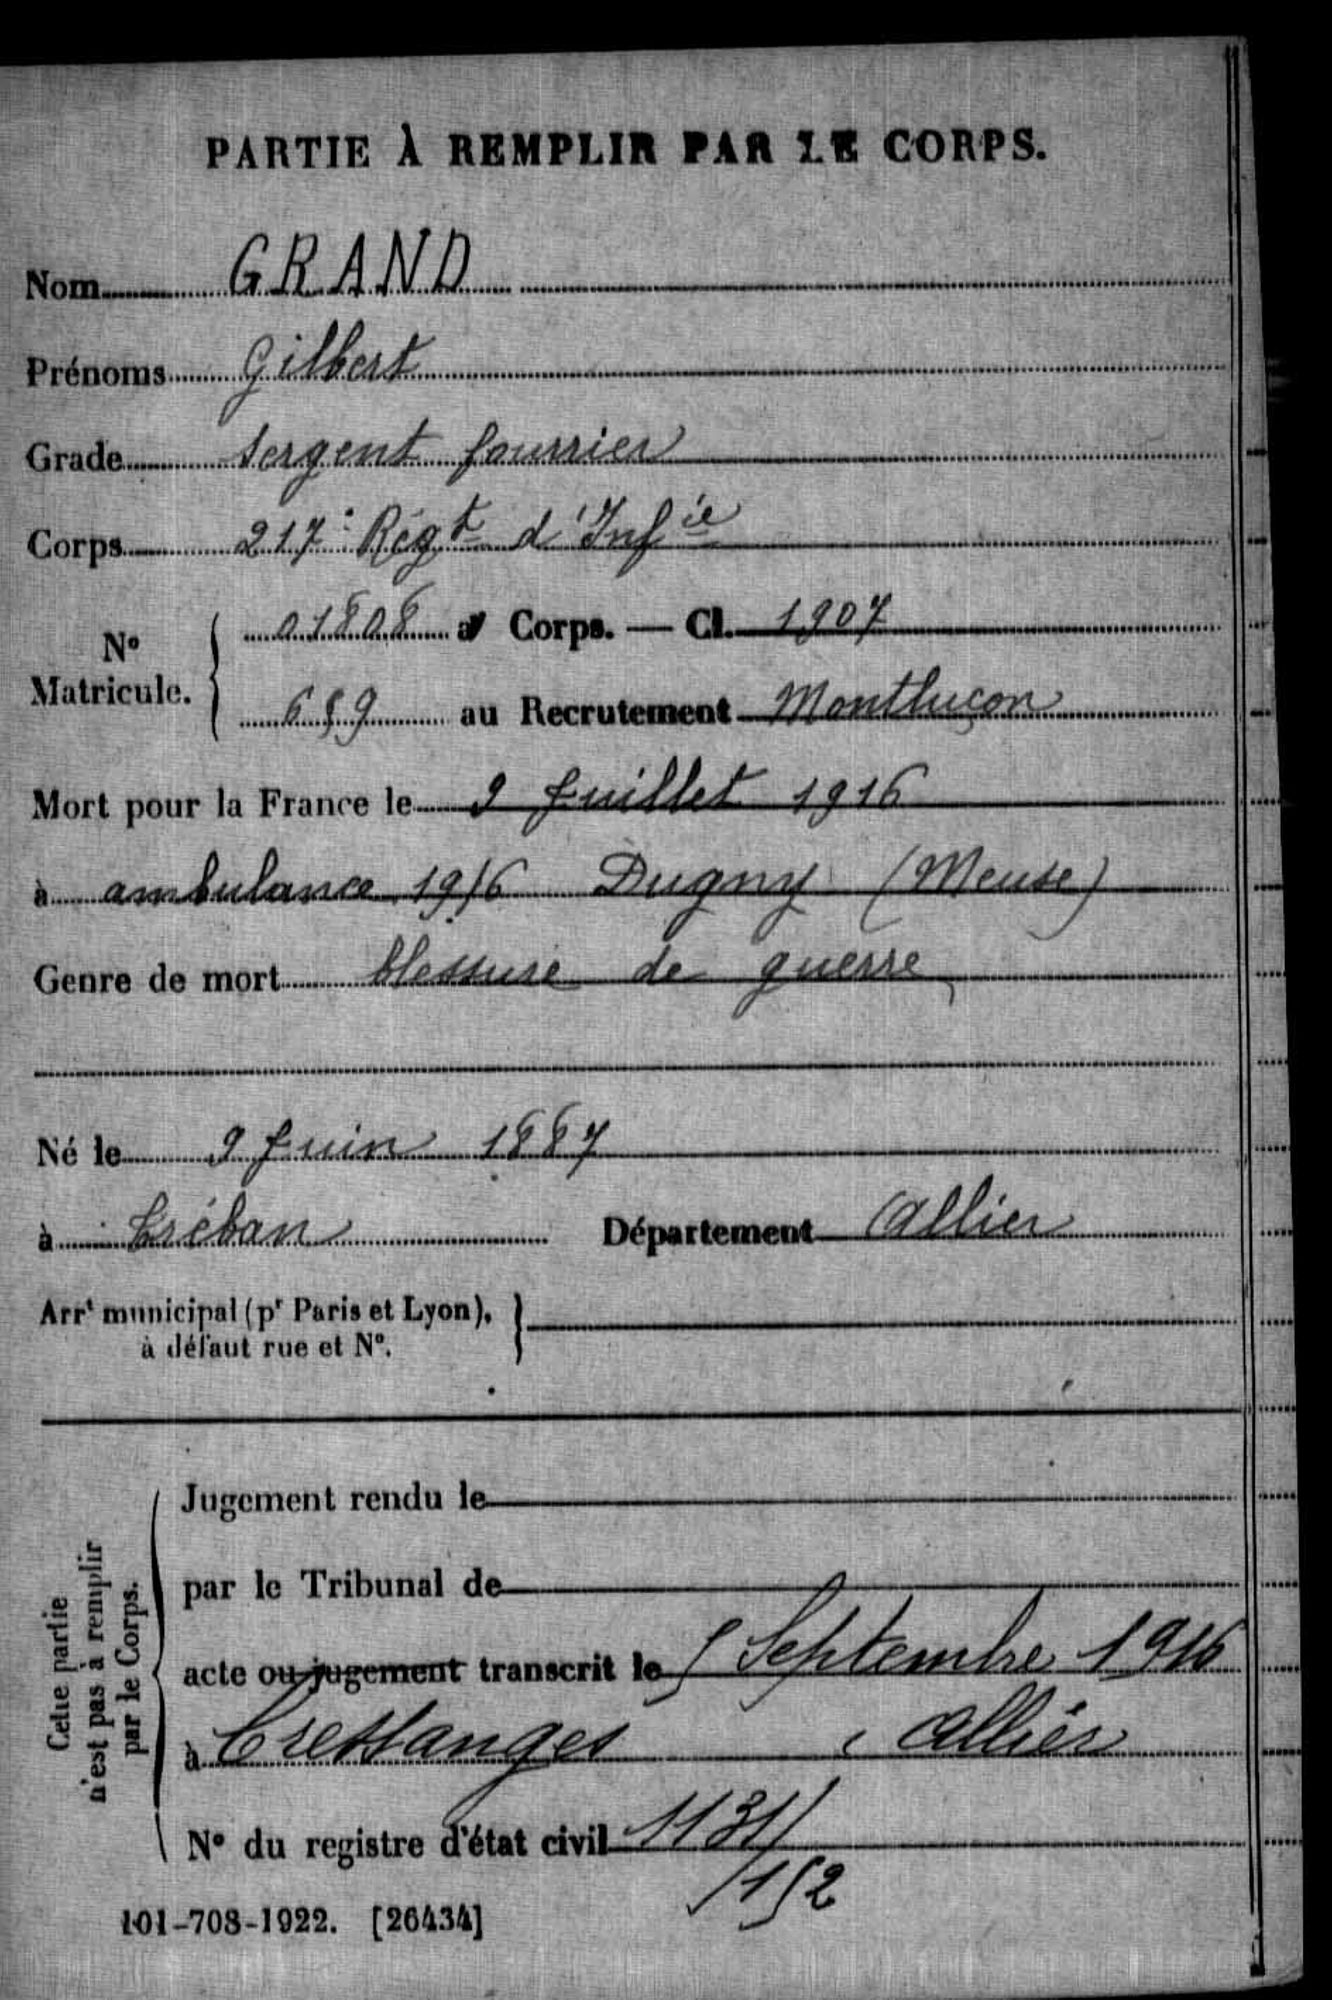 PARTIE À REMPLIR PAR LE CORPS.
Nom GRAND
Prénoms Gilbert
Grade Sergent fourrier
Corps 217e Régt d'Infie
No Matricule. { 01808 au Corps. — Cl. 1907
659 au Recrutement Montluçon
Mort pour la France le 9 Juillet 1916
à ambulance 1916 Dugny (Meuse)
Genre de mort blessure de guerre
Né le 9 Juin 1887
à Tréban Département Allier
Arrt municipal (pr Paris et Lyon), à défaut rue et No. }
Cette partie n'est pas à remplir par le Corps.
Jugement rendu le
par le Tribunal de
acte ou jugement transcrit le 5 Septembre 1916
à Cressanges, Allier
No du registre d'état civil 1131/
/152
101-708-1922. [26434]